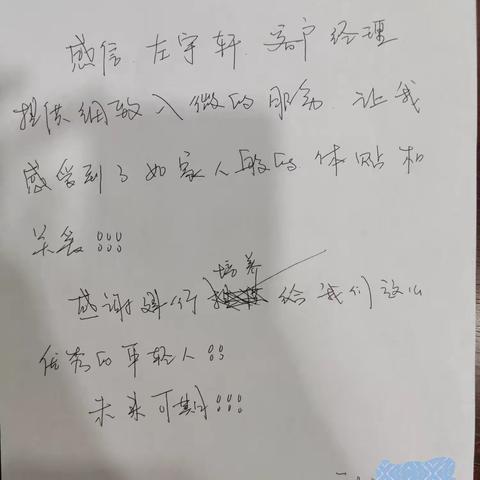 感信 左宇轩 客户经理
提供细致入微的服务 让我
感受到了如家人般的体贴和
关爱!!!
培养
感谢 行 给我们这么
优秀的年轻人!!
未来可期!!!